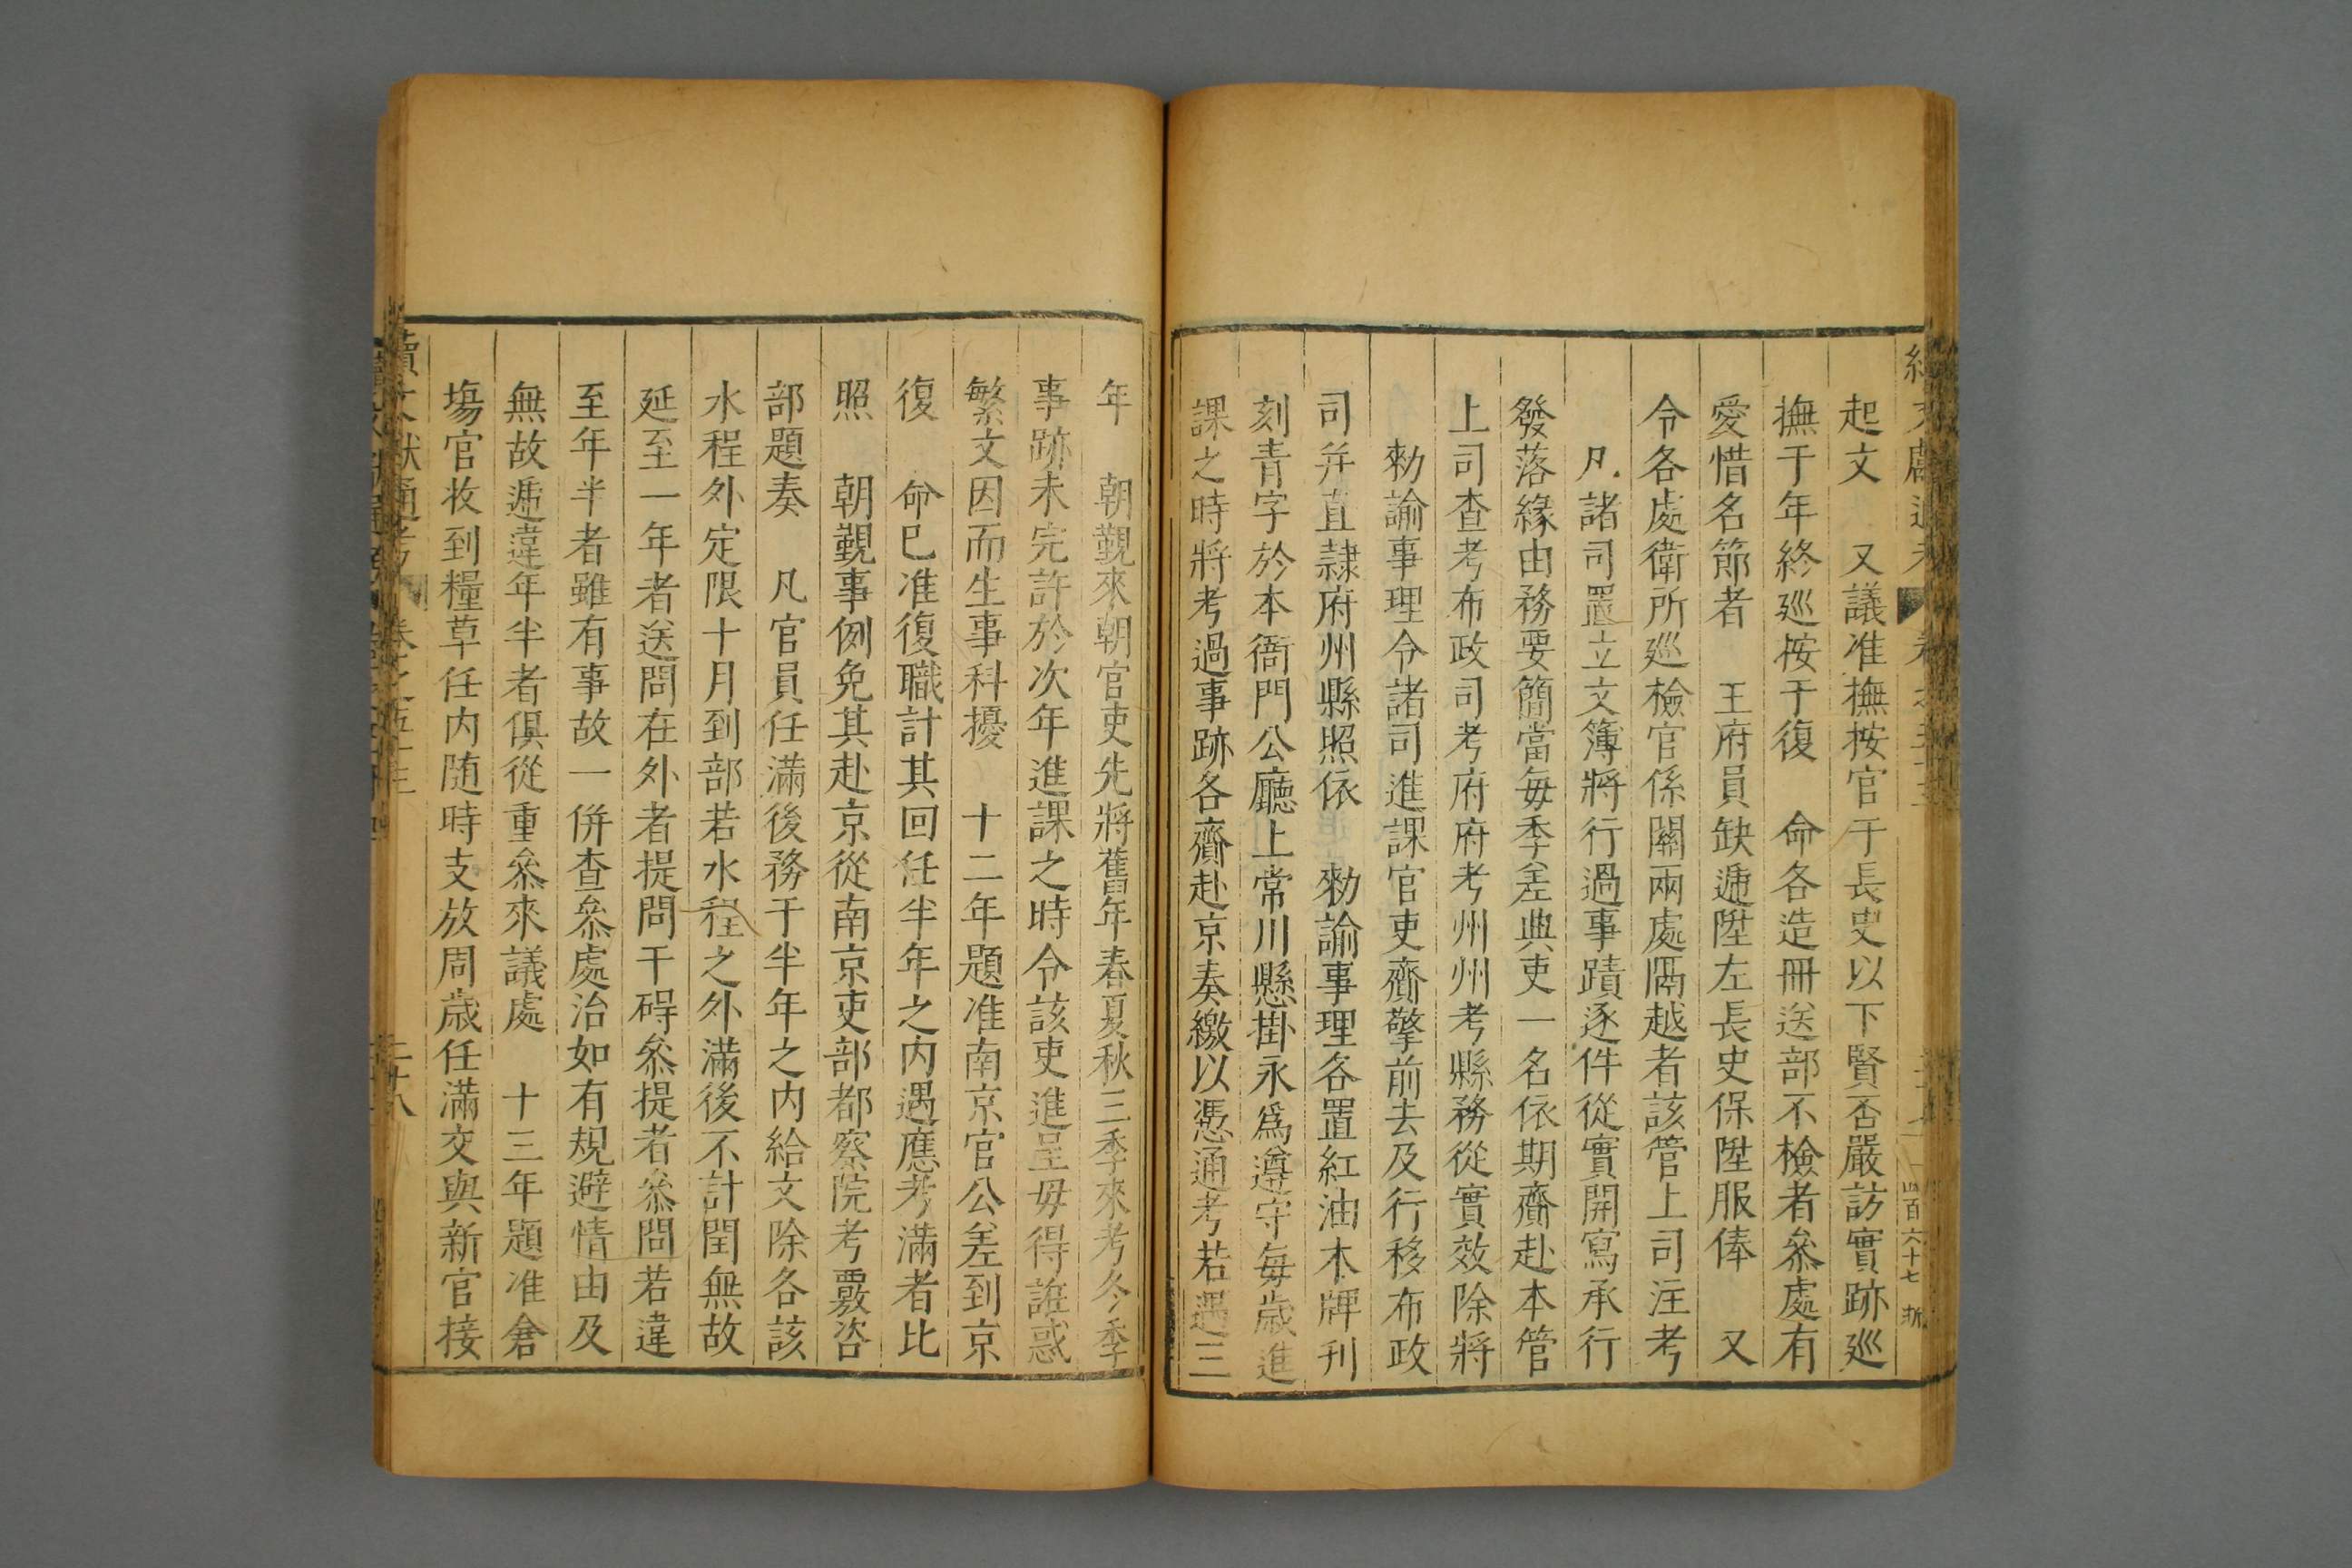 起文　又議准撫按官于長史以下賢否嚴訪實跡巡
撫于年終巡按于復　命各造冊送部不檢者叅處有
愛惜名節者　王府員缺遞陞左長史保陞服俸　又
令各處衛所巡檢官係關兩處隔越者該管上司注考
凡諸司置立文簿將行過事蹟逐件從實開寫承行
發落緣由務要簡當每季差典吏一名依期齎赴本管
上司查考布政司考府府考州州考縣務從實效除將
勑諭事理令諸司進課官吏齎擎前去及行移布政
司并直隷府州縣照依　勑諭事理各置紅油木牌刊
刻青字於本衙門公廳上常川懸掛永爲遵守每歲進
課之時將考過事跡各齎赴京奏繳以憑通考若遇三
年　朝覲來朝官吏先將舊年春夏秋三季來考冬季
事跡未完許於次年進課之時令該吏進呈毋得誑惑
繁文因而生事科擾　十二年題准南京官公差到京
復　命已准復職計其回任半年之内遇應考滿者比
照　朝覲事例免其赴京從南京吏部都察院考覈咨
部題奏　凡官員任滿後務于半年之内給文除各該
水程外定限十月到部若水程之外滿後不計閏無故
延至一年者送問在外者提問干碍叅提者叅問若違
至年半者雖有事故一併查叅處治如有規避情由及
無故遞違年半者俱從重叅來議處　十三年題准倉
塲官收到糧草任内随時支放周歲任滿交與新官接
四百六十七
二十八